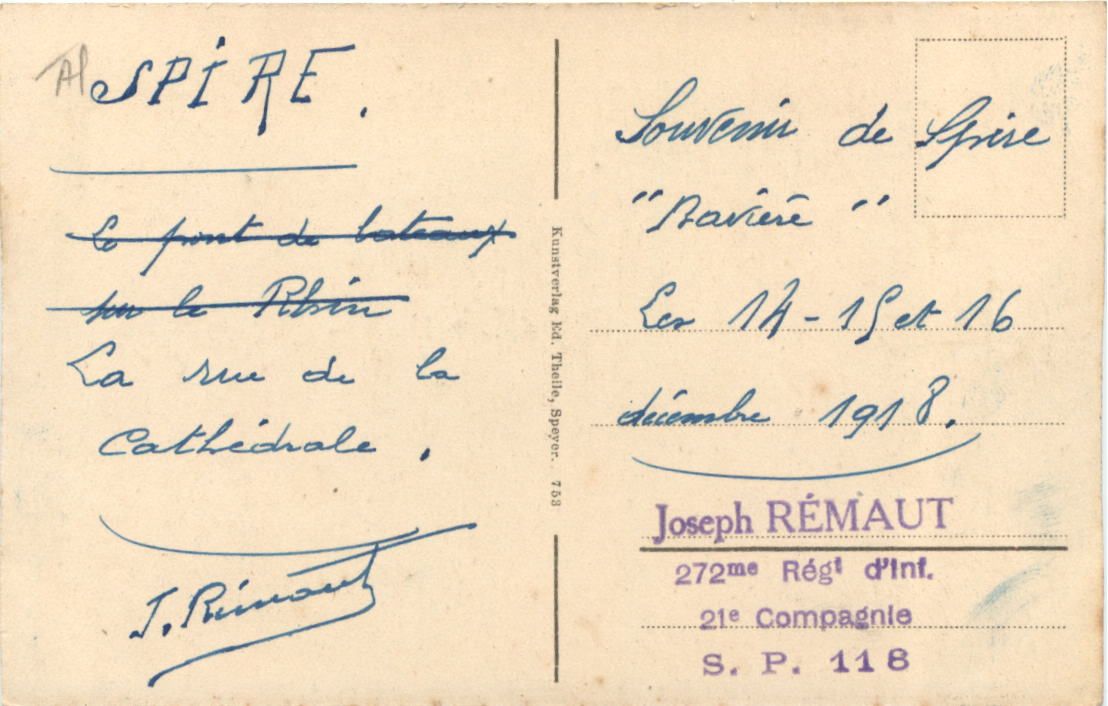 Al
SPIRE.
Le pont de bateaux
sur le Rhin
La rue de la
Cathédrale.
J. Rémaut
Kunstverlag Ed. Theile, Speyer. 753
Souvenir de Spire
"Bavière"
Les 14 - 15 et 16
décembre 1918.
Joseph RÉMAUT
272me Régt d'Inf.
21e Compagnie
S. P. 118